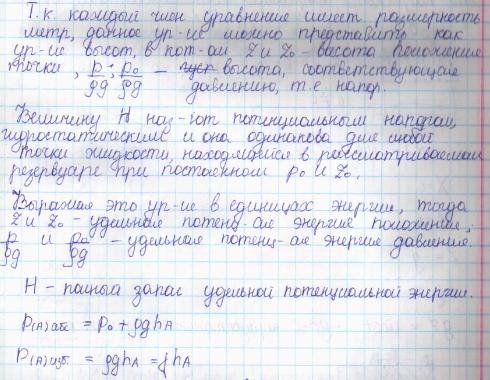 Т.к. каждый член уравнение имеет размерность
метр, данное ур-ие можно представить как
ур-ие высот, в кот-ом z и z₀ - высота положение
точки, p/ρg ; p₀/ρg - высота, соответствующая
давлению, т.е. напор.
Величину H наз-ют потенциальным напором,
гидростатическим и она одинакова для любой
точки жидкости, находящейся в рассматриваемом
резервуаре при постоянном p₀ и z₀.
Выражая это ур-ие в единицах энергии, тогда
z и z₀ - удельная потенц-ая энергия положения,
p/ρg и p₀/ρg - удельная потенц-ая энергия давления.
H - полный запас удельной потенциальной энергии.
P(A)абс = p₀ + ρghA
P(A)изб = ρghA = γhA